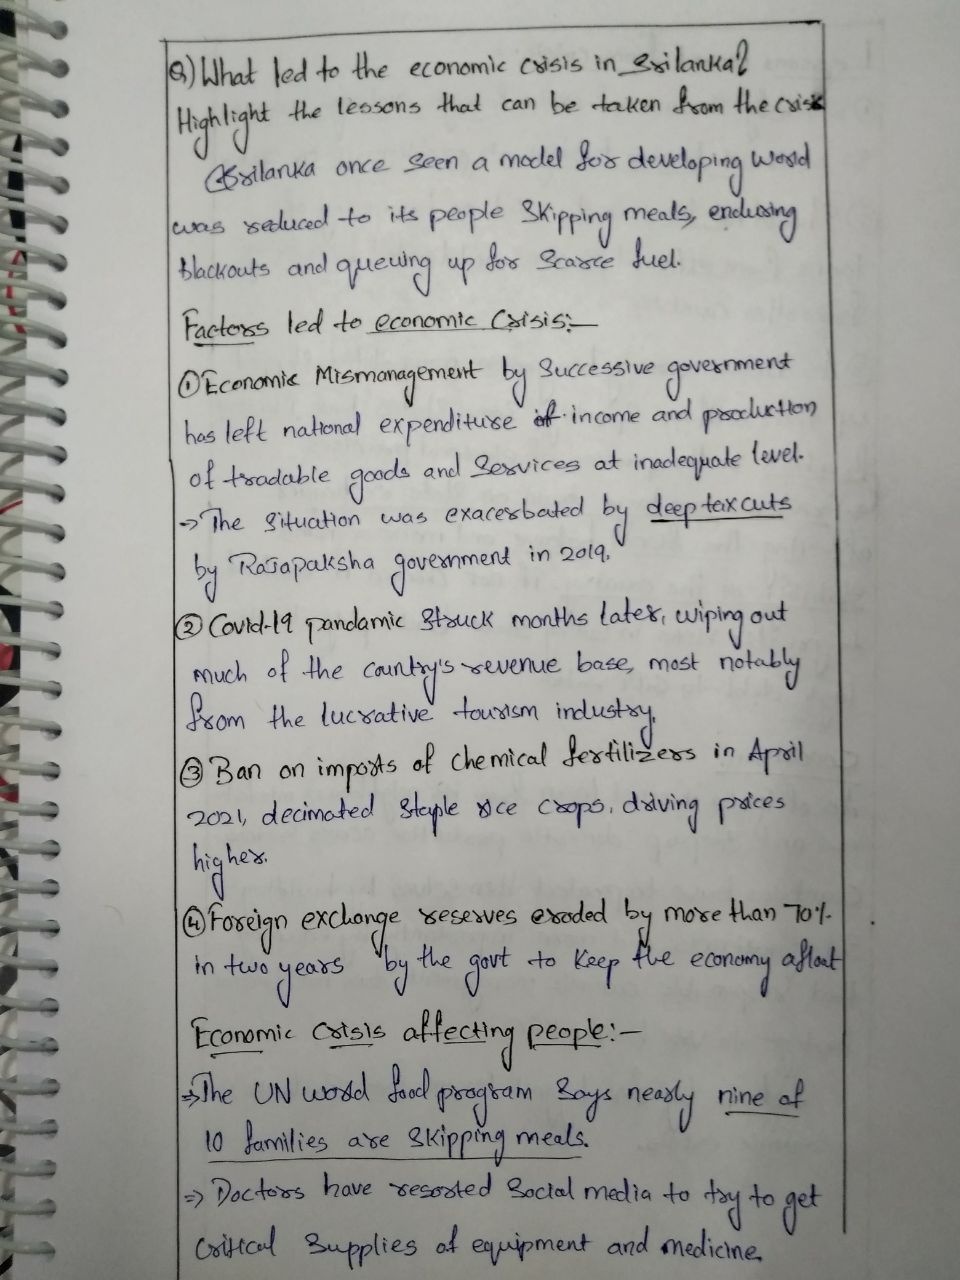 Q) What led to the economic crisis in Srilanka?
Highlight the lessons that can be taken from the crisis
Srilanka once seen a model for developing world
was reduced to its people skipping meals, enduring
blackouts and queuing up for scarce fuel.
Factors led to economic Crisis:-
① Economic Mismanagement by Successive government
has left national expenditure of income and production
of tradable goods and Services at inadequate level.
→ The situation was exacerbated by deep tax cuts
by Rajapaksha government in 2019.
② Covid-19 pandamic struck months later, wiping out
much of the country's revenue base, most notably
from the lucrative tourism industry.
③ Ban on imports of chemical fertilizers in April
2021, decimated staple rice crops, driving prices
higher.
④ Foreign exchange reserves eroded by more than 70%
in two years by the govt to keep the economy afloat
Economic Crisis affecting people:-
⇒ The UN world food program says nearly nine of
10 families are skipping meals.
⇒ Doctors have resorted social media to try to get
critical supplies of equipment and medicine